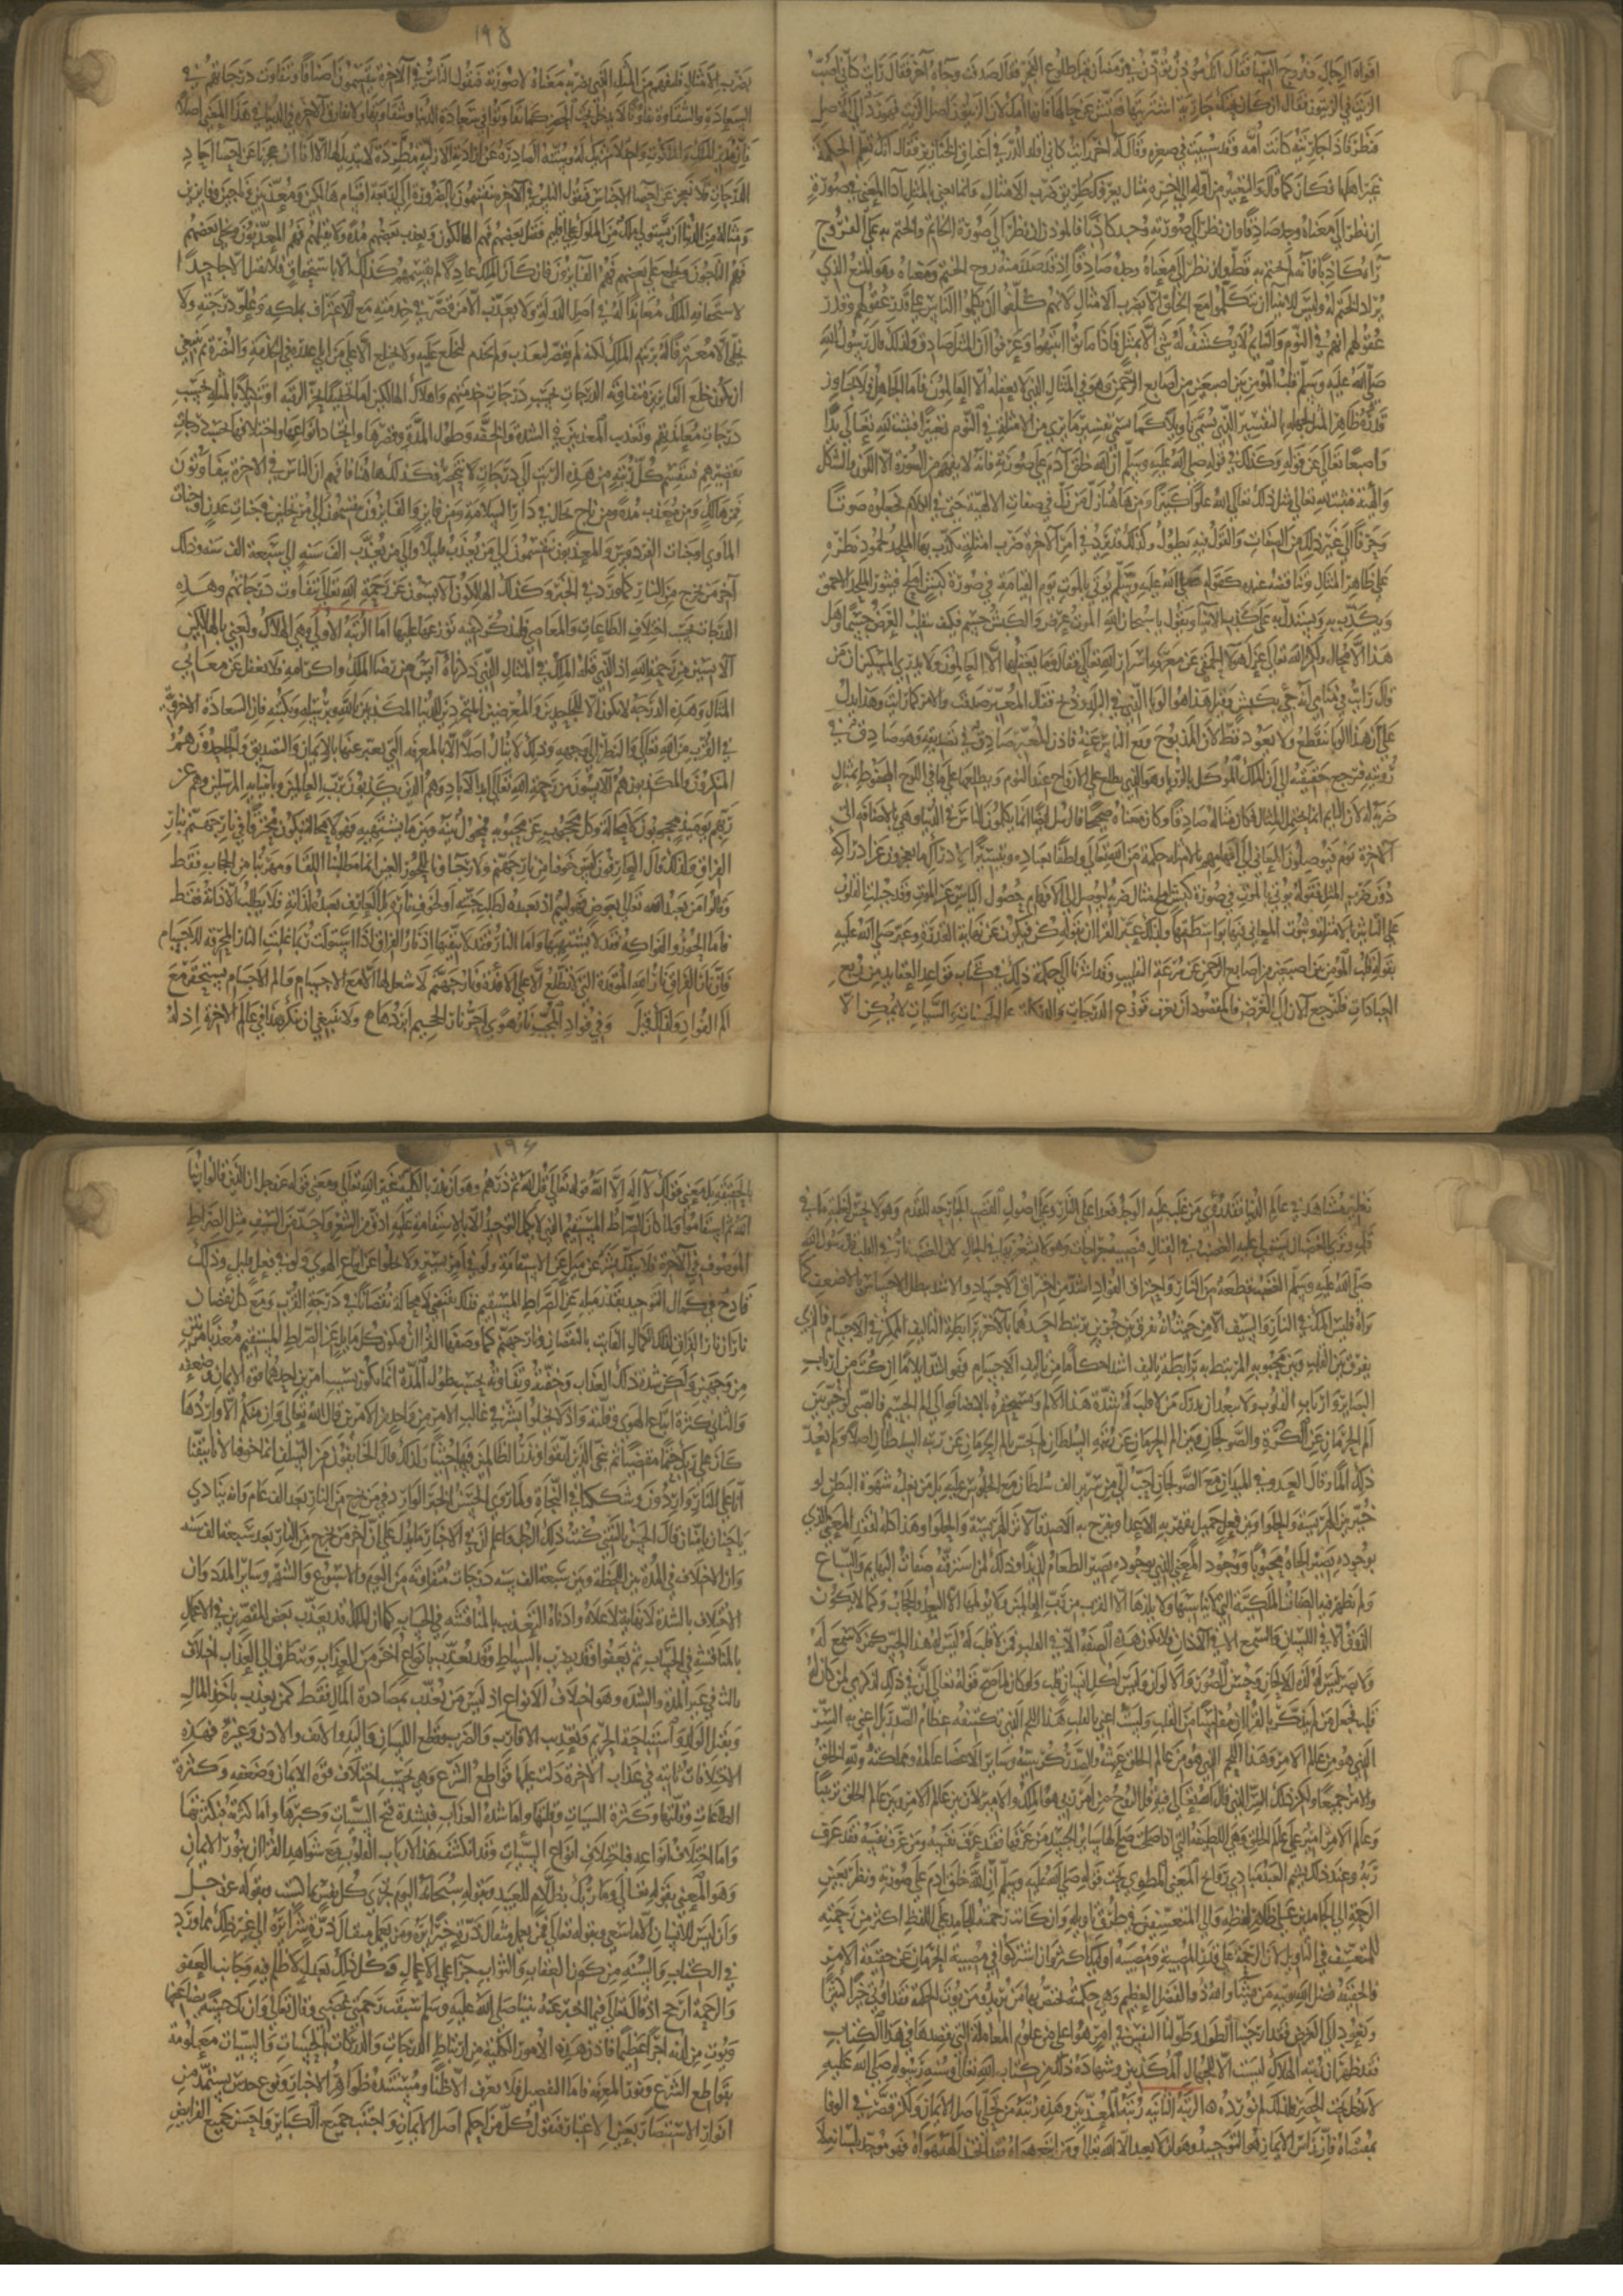 افواه الرجال وفروج النساء فقال انك مؤذن تؤذن في رمضان قبل طلوع الفجر فقال صدقت وجاءه آخر فقال رايت كاني اصب
الزيت في الزيتون فقال ان كان تحتك جارية اشتريتها ففتش عن حالها فانها امك لان الزيتون اصل الزيت فهو رد الى الاصل
فنظر فاذا جاريته كانت امه وقد سبيت في صغره وقال له آخر رايت كاني اقلد الدر في اعناق الخنازير فقال انك تعلم الحكمة
غير اهلها فكان كما قال والتعبير من اوله الى اخره مثال يعرفك طريق ضرب الامثال وانما نعني بالمثل اداء المعنى في صورة
ان نظر الى معناه وجد صادقا وان نظر الى صورته وجد كاذبا فالمؤذن ان نظر الى صورة الخاتم والختم به على الفروج
رآه كاذبا فانه لم يختم به قط وان نظر الى معناه وجده صادقا اذ قد صدر منه روح الختم ومعناه وهو المنع الذي
يراد الختم له وليس للانبياء ان يتكلموا مع الخلق الا بضرب الامثال لانهم كلفوا ان يكلموا الناس على قدر عقولهم وقدر
عقولهم انهم في النوم والنايم لا يكشف له شي الا بمثل فاذا ماتوا انتبهوا وعرفوا ان المثل صادق ولذلك قال رسول الله
صلى الله عليه وسلم قلب المؤمن بين اصبعين من اصابع الرحمن وهو من المثال الذي لا يعقله الا العالمون فاما الجاهل فلا يجاوز
قدره ظاهر المثل لجهله بالتفسير الذي يسمى تاويلا كما سمي تفسير ما يرى من الامثلة في النوم تعبيرا فيثبت لله تعالى يدا
واصبعا تعالى عن قوله وكذلك في قوله صلى الله عليه وسلم ان الله خلق آدم على صورته فانه لا يفهم من الصورة الا اللون والشكل
والهيئة فيثبت لله تعالى مثل ذلك تعالى الله علوا كبيرا ومن هاهنا زل من زل في صفات الالهية حتى في الكلام فجعلوه صوتا
وحرفا الى غير ذلك من الصفات والقول فيه يطول وكذلك قد يرد في امر الاخرة ضرب امثلة يكذب بها الملحد لجمود نظره
على ظاهر المثال وتناقضه عنده كقوله صلى الله عليه وسلم يؤتى بالموت يوم القيامة في صورة كبش املح فيثور الملحد الاحمق
ويكذب به ويستدل به على كذب الانبيا ويقول يا سبحان الله الموت عرض والكبش جسم فكيف ينقلب العرض جسما وهل
هذا الا محال ولكن الله تعالى عزل هولاء الحمقى عن معرفة اسراره اذ الله تعالى قال وما يعقلها الا العالمون ولا يدري المسكين ان من
قال رايت في منامي انه جيء بكبش وقيل هذا هو الوباء الذي في البلد وذبح فقال المعبر صدقت والامر كما رايت وهذا يدل
على ان هذا الوبا ينقطع ولا يعود قط لان المذبوح وقع الناس عنه فاذن المعبر صادق في تصديقه وهو صادق في
رؤيته وترجع حقيقته الى ان الملك الموكل بالرؤيا وهو الذي يطلع على الارواح عند النوم ويطلعها على ما في اللوح المحفوظ بمثال
ضربه له لان النايم انما يحتمل المثال فكان مثاله صادقا وكان معناه صحيحا فالرسل ايضا انما يكلمون الناس في الدنيا وهي بالاضافة الى
الاخرة نوم فيوصلون المعاني الى افهامهم بالامثلة حكمة من الله تعالى ولطفا بعباده وتيسيرا لادراك ما يعجزون عن ادراكه
دون ضرب المثل فقوله يؤتى بالموت في صورة كبش املح مثال ضربه ليوصل الى الافهام حصول الياس عن الموت وقد جبلت القلوب
على التاثر بالامثلة وثبوت المعاني فيها بواسطتها ولذلك عبر القران بقوله كن فيكون عن نهاية القدرة وعبر صلى الله عليه
بقوله قلب المؤمن بين اصبعين من اصابع الرحمن عن سرعة التقليب وقد اشرنا الى حكمة ذلك في كتاب قواعد العقايد من ربع
العبادات فلنرجع الان الى الغرض فالمقصود ان تعريف توزع الدرجات والدركات على الحسنات والسيات لا يمكن الا
١٩٥
بضرب الامثال فلنفهم من المثل الذي نضربه معناه لا صورته فنقول الناس في الاخرة ينقسمون اصنافا وتتفاوت درجاتهم في
السعادة والشقاوة تفاوتا لا يدخل تحت الحصر كما تفاوتوا في سعادة الدنيا وشقاوتها ولا تفارق الاخرة الدنيا في هذا المعنى اصلا
فان مدبر الملك والملكوت واحد لا شريك له وسنته الصادرة عن ارادته الازلية مطردة لا تبديل لها الا انا ان عجزنا عن احصاء احاد
الدرجات فلا نعجز عن احصاء الاجناس فنقول الناس في الاخرة ينقسمون بالضرورة الى اربعة اقسام هالكين ومعذبين وناجين وفايزين
ومثاله من الدنيا ان يستولي ملك من الملوك على اقليم فيقتل بعضهم فهم الهالكون ويعذب بعضهم مدة ولا يقتلهم فهم المعذبون ويخلي بعضهم
فهم الناجون ويخلع على بعضهم فهم الفايزون فان كان الملك عادلا لم يقسمهم كذلك الا باستحقاق فلا يقتل الا جاحدا
لاستحقاقه الملك معاندا له في اصل الدولة ولا يعذب الا من قصر في خدمته مع الاعتراف بملكه وعلو درجته ولا
يخلي الا معترفا له برتبة الملك لكنه لم يقصر ليعذب ولم يخدم ليخلع عليه ولا يخلع الا على من ابلى عمره في الخدمة والنصرة ثم ينبغي
ان يكون خلع الفايزين متفاوتة الدرجات بحسب درجات خدمتهم واهلاك الهالكين اما تحقيقا بحز الرقبة او تنكيلا بالمثلة بحسب
درجات معاندتهم وتعذيب المعذبين في الشدة والخفة وطول المدة وقصرها واتحاد انواعها واختلافها بحسب درجات
تقصيرهم فتنقسم كل رتبة من هذه الرتب الى درجات لا تحصر فكذلك هاهنا فافهم ان الناس في الاخرة يتفاوتون
فمن هالك ومن معذب مدة ومن ناج حال في دار السلامة ومن فايز والفايزون ينقسمون الى من يحلون في جنات عدن او جنات
الماوى او جنات الفردوس والمعذبون ينقسمون الى من يعذب قليلا والى من يعذب الف سنة الى سبعة الف سنة وذلك
آخر من يخرج من النار كما ورد في الخبر وكذلك الهالكون الآيسون عن رحمة الله تعالى تتفاوت دركاتهم وهذه
الدرجات بحسب اختلاف الطاعات والمعاصي فلنذكر كيفية توزعها عليها اما الرتبة الاولى وهي الهلاك ونعني بالهالكين
الآيسين من رحمة الله اذ الذي قتله الملك في المثال الذي ذكرناه آيس من رضا الملك واكرامه فلا تغفل عن معاني
المثال وهذه الدرجة لا تكون الا للجاحدين والمعرضين المتجردين للدنيا المكذبين بالله وبرسله وكتبه فان السعادة الاخروية
في القرب من الله تعالى والنظر الى وجهه وذلك لا ينال اصلا الا بالمعرفة التي يعبر عنها بالايمان والتصديق والجاحدون هم
المنكرون والمكذبون هم الآيسون من رحمة الله تعالى ابد الاباد وهم الذين يكذبون برب العالمين وبانبيايه المرسلين وهم عن
ربهم يومئذ لمحجوبون لا محالة وكل محجوب عن محبوبه فمحول بينه وبين ما يشتهيه فهو لا محالة يكون محترقا في نار جهنم بنار
الفراق ولذلك قال العارفون ليس خوفنا من نار جهنم ولا رجاؤنا للحور العين انما مطلبنا اللقا ومهربنا من الحجاب فقط
وقالوا من يعبد الله تعالى بعوض فهو لئيم اذ يعبده لطلب جنته او لخوف ناره بل العارف يعبده لذاته فلا يطلب الا ذاته فقط
فاما الحور والفواكه فقد لا يشتهيها واما النار فقد لا يتقيها اذ نار الفراق اذا استولت ربما غلبت النار المحرقة للاجسام
فان نار الفراق نار الله الموقدة التي تطلع على الافئدة ونار جهنم لا شغل لها الا مع الاجسام والم الاجسام يستحقر مع
الم الفؤاد ولذلك قيل وفي فؤاد المحب نار هوى احر نار الجحيم ابردها ولا ينبغي ان تنكر هذا في عالم الاخرة اذ له
نظير مشاهد في عالم الدنيا فقد رؤي من غلب عليه الوجد فعدا على النار وعلى اصول القصب الجارحة للقدم وهو لا يحس لغلبة ما في
قلبه وترى الغضبان يستولي عليه الغضب في القتال فتصيبه جراحات وهو لا يشعر بها في الحال لان الغضب نار في القلب قال رسول الله
صلى الله عليه وسلم الغضب قطعة من النار واحتراق الفؤاد اشد من احتراق الاجساد والاشد يبطل الاحساس بالاضعف كما
تراه فليس الهلاك من النار والسيف الا من حيث انه يفرق بين جزين يرتبط احدهما بالاخر برابطة التاليف الممكن في الاجسام فالذي
يفرق بين القلب وبين محبوبه المرتبط به برابطة تاليف اشد احكاما من تاليف الاجسام فهو اشد ايلاما ان كنت من ارباب
البصاير وارباب القلوب ولا يبعد ان لا يدرك من لا قلب له شدة هذا الالم ويستحقره بالاضافة الى الم الجسم فالصبي لو خير بين
الم الحرمان عن الكرة والصولجان وبين الم الحرمان عن رتبة السلطان لم يحس بالم الحرمان عن رتبة السلطان اصلا ولم يعد
ذلك الما وقال العدو في الميدان مع الصولجان احب الي من سرير الف سلطان مع الجلوس عليه بل من تغلبه شهوة البطن لو
خير بين الهريسة والحلوا وبين فعل جميل يقهر به الاعدا ويفرح به الاصدقا لآثر الهريسة والحلوا وهذا كله لفقد المعنى الذي
بوجوده يصير الجاه محبوبا ووجود المعنى الذي بوجوده يصير الطعام لذيذا وذلك لمن استرقته صفات البهايم والسباع
ولم تظهر فيه الصفات الملكية التي لا يناسبها ولا يلذها الا القرب من رب العالمين ولا يولمها الا البعد والحجاب وكما لا يكون
الذوق الا في اللسان والسمع الا في الاذان فلا تكون هذه الصفة الا في القلب فمن لا قلب له ليس له هذا الحس كمن لا سمع له
ولا بصر ليس له لذة الالحان وحسن الصور والالوان وليس لكل انسان قلب ولو كان لما صح قوله تعالى ان في ذلك لذكرى لمن كان له
قلب فجعل من لم يتذكر بالقران مفلسا من القلب ولست اعني بالقلب هذا اللحم الذي تكتنفه عظام الصدر بل اعني به السر
الذي هو من عالم الامر وهذا اللحم الذي هو من عالم الخلق عرشه والصدر كرسيه وساير الاعضا عالمه ومملكته ولله الخلق
والامر جميعا ولكن ذلك السر الذي قال الله تعالى فيه قل الروح من امر ربي هو الملك والامير لان بين عالم الامر وبين عالم الخلق ترتيبا
وعالم الامر امير على عالم الخلق وهي اللطيفة التي اذا صلحت صلح لها ساير الجسد من عرفها فقد عرف نفسه ومن عرف نفسه فقد عرف
ربه وعند ذلك يشم العبد مبادي روايح المعنى المطوي تحت قوله صلى الله عليه وسلم ان الله خلق ادم على صورته ونظر بعين
الرحمة الى الحاملين على ظاهر لفظه والى المتعسفين في طرق تاويله وان كانت رحمته للحامد على اللفظ اكثر من رحمته
للمتعسف في التاويل لان الرحمة على قدر المصيبة ومصيبة اوليك اكثر وان اشتركوا في مصيبة الحرمان عن حقيقة الامر
فالحقيقة فضل الله يوتيه من يشا والله ذو الفضل العظيم وهي حكمته يختص بها من يريد ومن يؤت الحكمة فقد اوتي خيرا كثيرا
ونعود الى الغرض فقد ارخينا الطول وطولنا النفس في امر هو اعلى من علوم المعاملة التي نقصدها في هذا الكتاب
فقد ظهر ان رتبة الهلاك ليست الا للجهال المكذبين وشهادة ذلك من كتاب الله تعالى وسنة رسوله صلى الله عليه
لا يدخل تحت الحصر فلذلك لم نورده الرتبة الثانية رتبة المعذبين وهذه رتبة من تحلى باصل الايمان ولكن قصر في الوفا
بمقتضاه فان راس الايمان هو التوحيد وهو ان لا يعبد الا الله تعالى ومن اتبع هواه فقد اتخذ الهه هواه فهو موحد بلسانه لا
١٩٦
بالحقيقة بل معنى قولك لا اله الا الله قوله تعالى قل الله ثم ذرهم وهو ان تذر بالكلية غير الله تعالى ومعنى قوله عز وجل ان الذين قالوا ربنا
الله ثم استقاموا ولما كان الصراط المستقيم الذي لا يكمل التوحيد الا بالاستقامة عليه ادق من الشعر واحد من السيف مثل الصراط
الموصوف في الاخرة فلا ينفك بشر عن ميل عن الاستقامة ولو في امر يسير ولا يخلوا عن اتباع الهوى ولو في فعل قليل وذلك
قادح في كمال التوحيد بقدر ميله عن الصراط المستقيم فذلك يقتضي لا محالة نقصانا في درجة القرب ومع كل نقصان
ناران نار الفراق لذلك الكمال الفايت بالنقصان ونار جهنم كما وصفها القران فيكون كل مايل عن الصراط المستقيم معذبا مرتين
من وجهين ولكن شدة ذلك العذاب وخفته وتفاوته بحسب طول المدة انما يكون بسبب امرين احدهما قوة الايمان وضعفه
والثاني كثرة اتباع الهوى وقلته واذ لا يخلوا بشر في غالب الامر من واحد من الامرين قال الله تعالى وان منكم الا واردها
كان على ربك حتما مقضيا ثم ننجي الذين اتقوا ونذر الظالمين فيها جثيا ولذلك قال الخايفون من السلف انما خوفنا لانا تيقنا
انا على النار واردون وشككنا في النجاة ولما روى الحسن الخبر الوارد فيمن يخرج من النار بعد الف عام وانه ينادي
يا حنان يا منان قال الحسن يا ليتني كنت ذلك الرجل واعلم ان في الاخبار ما يدل على ان آخر من يخرج من النار بعد سبعة الف سنة
وان الاختلاف في المدة بين اللحظة وبين سبعة الف سنة درجات متفاوتة من اليوم والاسبوع والشهر وساير المدد وان
الاختلاف بالشدة لا نهاية لاعلاه وادناه التعذيب بالمناقشة في الحساب كما ان الملك قد يعذب بعض المقصرين في الاعمال
بالمناقشة في الحساب ثم يعفوا وقد يضرب بالسياط وقد يعذب بانواع اخر من العذاب ويتطرق الى العذاب اختلاف
ثالث في غير المدة والشدة وهو اختلاف الانواع اذ ليس من يعذب بمصادرة المال فقط كمن يعذب باخذ المال
وبقتل الولد واستباحة الحريم وتعذيب الاقارب والضرب وقطع اللسان واليد والانف والاذن وغيره فهذه
الاختلافات ثابتة في عذاب الاخرة دلت عليها قواطع الشرع وهي بحسب اختلاف قوة الايمان وضعفه وكثرة
الطاعات وقلتها وكثرة السيات وقلتها واما شدة العذاب فبشدة قبح السيات وكبرها واما كثرته فبكثرتها
واما اختلاف انواعه فاختلاف انواع السيات وقد انكشف هذا لارباب القلوب مع شواهد القران بنور الايمان
وهو المعني بقوله تعالى وما ربك بظلام للعبيد وبقوله سبحانه اليوم تجزى كل نفس بما كسبت وبقوله عز وجل
وان ليس للانسان الا ما سعى وبقوله تعالى فمن يعمل مثقال ذرة خيرا يره ومن يعمل مثقال ذرة شرا يره الى غير ذلك مما ورد
في الكتاب والسنة من كون العقاب والثواب جزاء على الاعمال وكل ذلك بعدل لا ظلم فيه وجانب العفو
والرحمة ارجح اذ قال تعالى فيما اخبر عنه نبينا صلى الله عليه وسلم سبقت رحمتي غضبي وقال تعالى وان تك حسنة يضاعفها
ويؤت من لدنه اجرا عظيما فاذن هذه الامور الكلية من ارتباط الدرجات والدركات بالحسنات والسيات معلومة
بقواطع الشرع ونور المعرفة فاما التفصيل فلا يعرف الا ظنا ومستنده ظواهر الاخبار ونوع حدس يستمد من
انوار الاستبصار بعين الاعتبار فنقول كل من احكم اصل الايمان واجتنب جميع الكباير واحسن جميع الفرايض